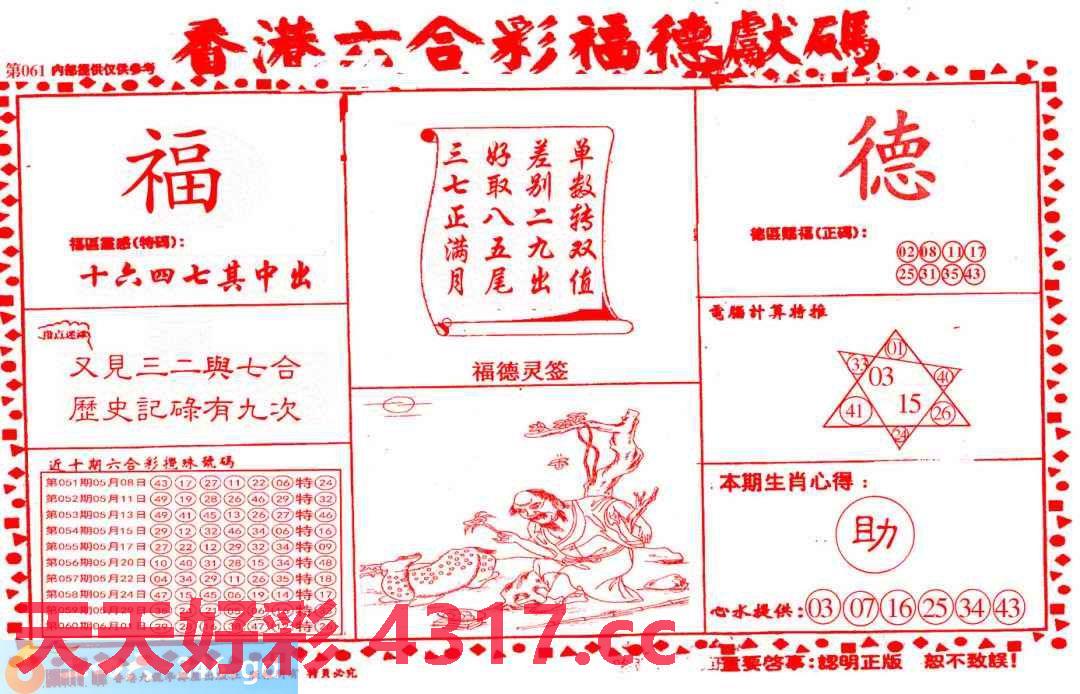 香港六合彩福德獻碼
第061 内部提供仅供参考
福
福區靈感(特碼):
十六四七其中出
指点迷津
又見三二與七合
歷史記碌有九次
近十期六合彩攪珠號碼
第051期05月08日 43 17 27 11 22 06 特 24
第052期05月11日 49 19 28 26 46 29 特 32
第053期05月13日 49 41 45 13 26 27 特 46
第054期05月15日 29 12 32 46 34 06 特 16
第055期05月17日 27 22 12 29 32 34 特 09
第056期05月20日 10 40 31 28 15 34 特 48
第057期05月22日 04 34 29 11 26 35 特 18
第058期05月24日 47 15 45 06 19 14 特 17
单数转双值
差别二九出
好取八五尾
三七正满月
福德灵签
德
德區賜福(正碼):
02 08 11 17
25 31 35 43
電腦計算特推
01
33 03 40
41 15 26
24
本期生肖心得:
助
心水提供: 03 07 16 25 34 43
天天好彩 4317.cc
重要啓事:認明正版 恕不致誤!